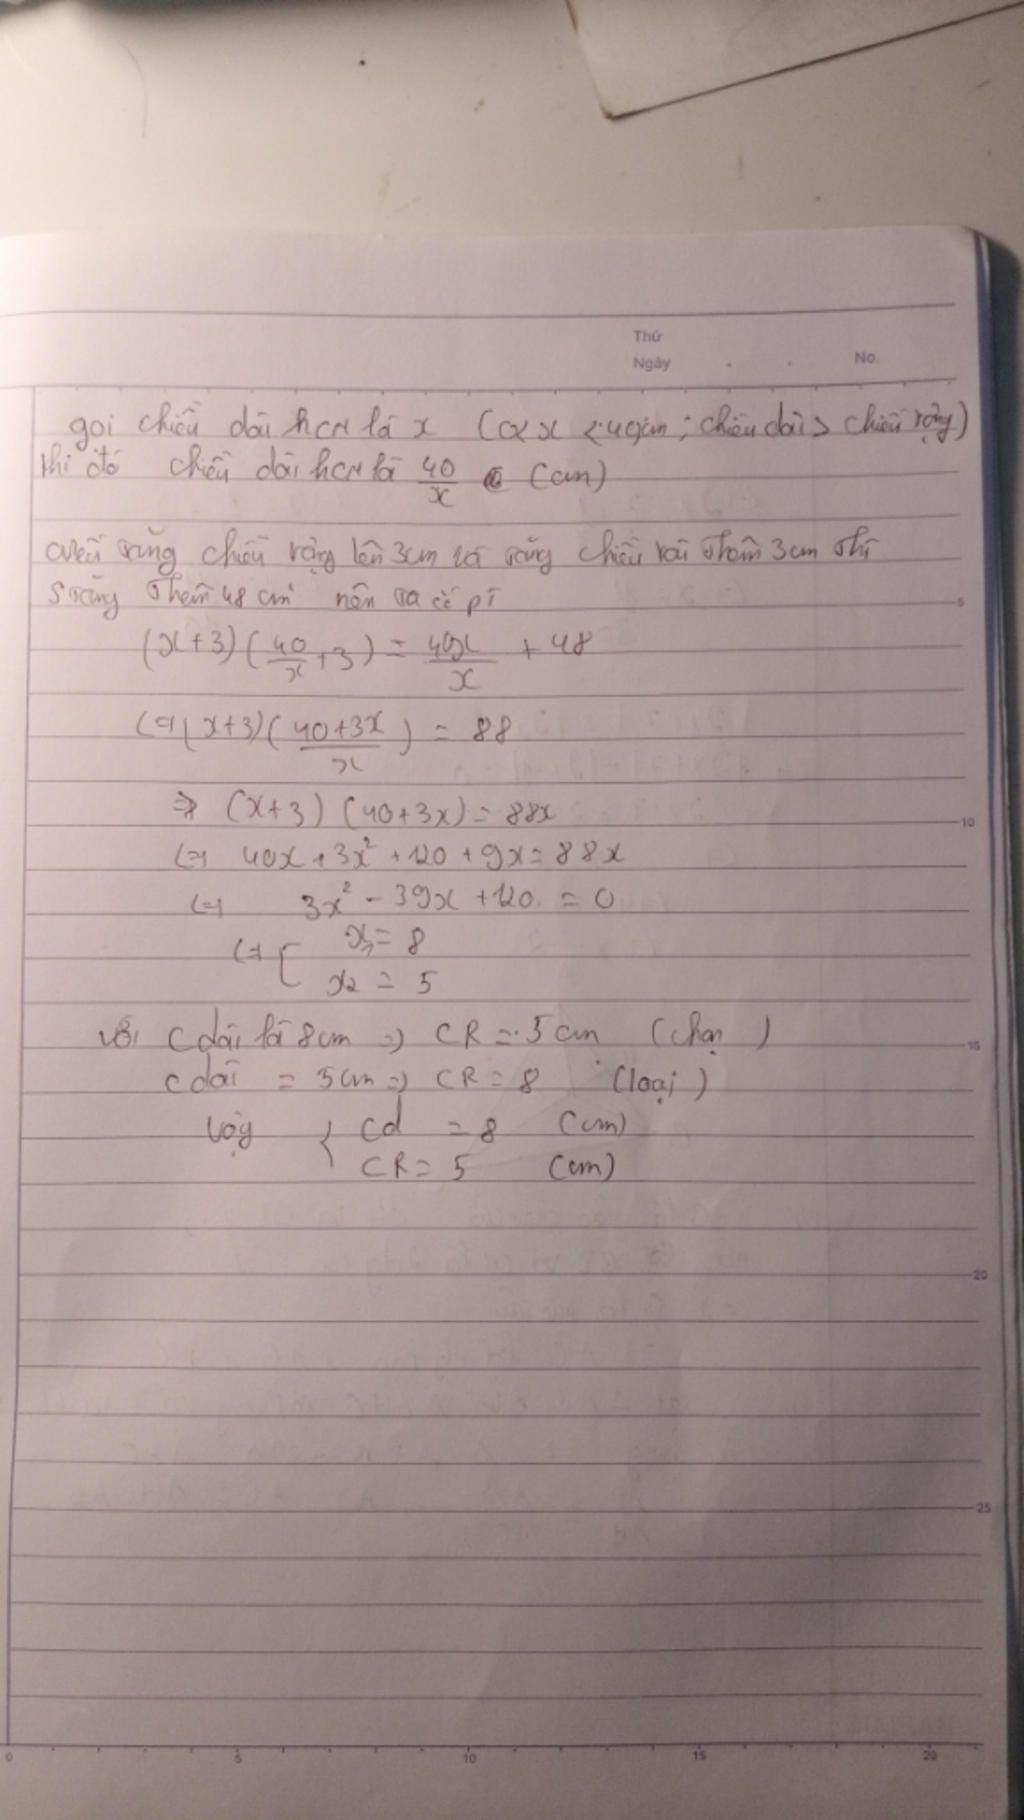 Thứ
Ngày . . No.
gọi chiều dài hcn là x (0< x < 40cm ; chiều dài > chiều rộng)
khi đó chiều dài hcn là 40/x (cm)
nếu tăng chiều rộng lên 3cm và tăng chiều dài thêm 3cm thì
S tăng thêm 48 cm² nên ta có pt
(x+3)(40/x +3) = 40x/x + 48
(=) (x+3)(40+3x/x) = 88
=> (x+3) (40+3x) = 88x
(=) 40x + 3x² + 120 + 9x = 88x
(=) 3x² - 39x + 120 = 0
(=) [ x₁ = 8
x₂ = 5
với C dài là 8cm => CR = 5cm (chọn)
c dài = 5cm => CR = 8 (loại)
Vậy { Cd = 8 (cm)
CR = 5 (cm)
5
10
15
20
25
0 5 10 15 20